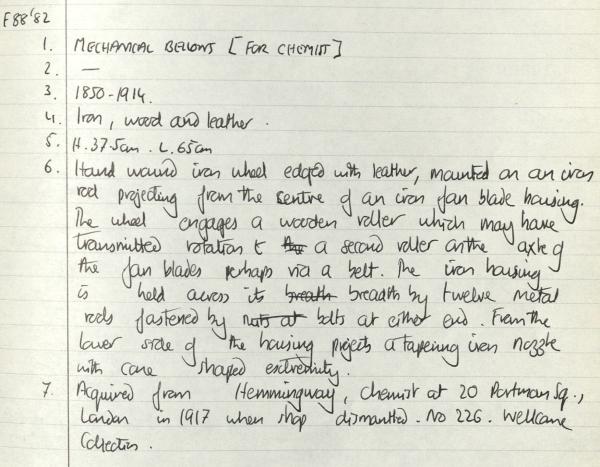 F88'82
1. MECHANICAL BELLOWS [FOR CHEMIST]
2. —
3. 1850-1914.
4. Iron, wood and leather.
5. H. 37.5cm. L. 65cm
6. Hand wound iron wheel edged with leather, mounted on an iron
rod projecting from the centre of an iron fan blade housing.
The wheel engages a wooden roller which may have
transmitted rotation t a second roller on the axle of
the fan blades perhaps via a belt. The iron housing
is held across its breath breadth by twelve metal
rods fastened by nuts at bolts at either end. From the
lower side of the housing projects a tapering iron nozzle
with cone shaped extremity.
7. Acquired from Hemmingway, chemist at 20 Portman Sq.,
London in 1917 when shop dismantled. No 226. Wellcome
Collection.